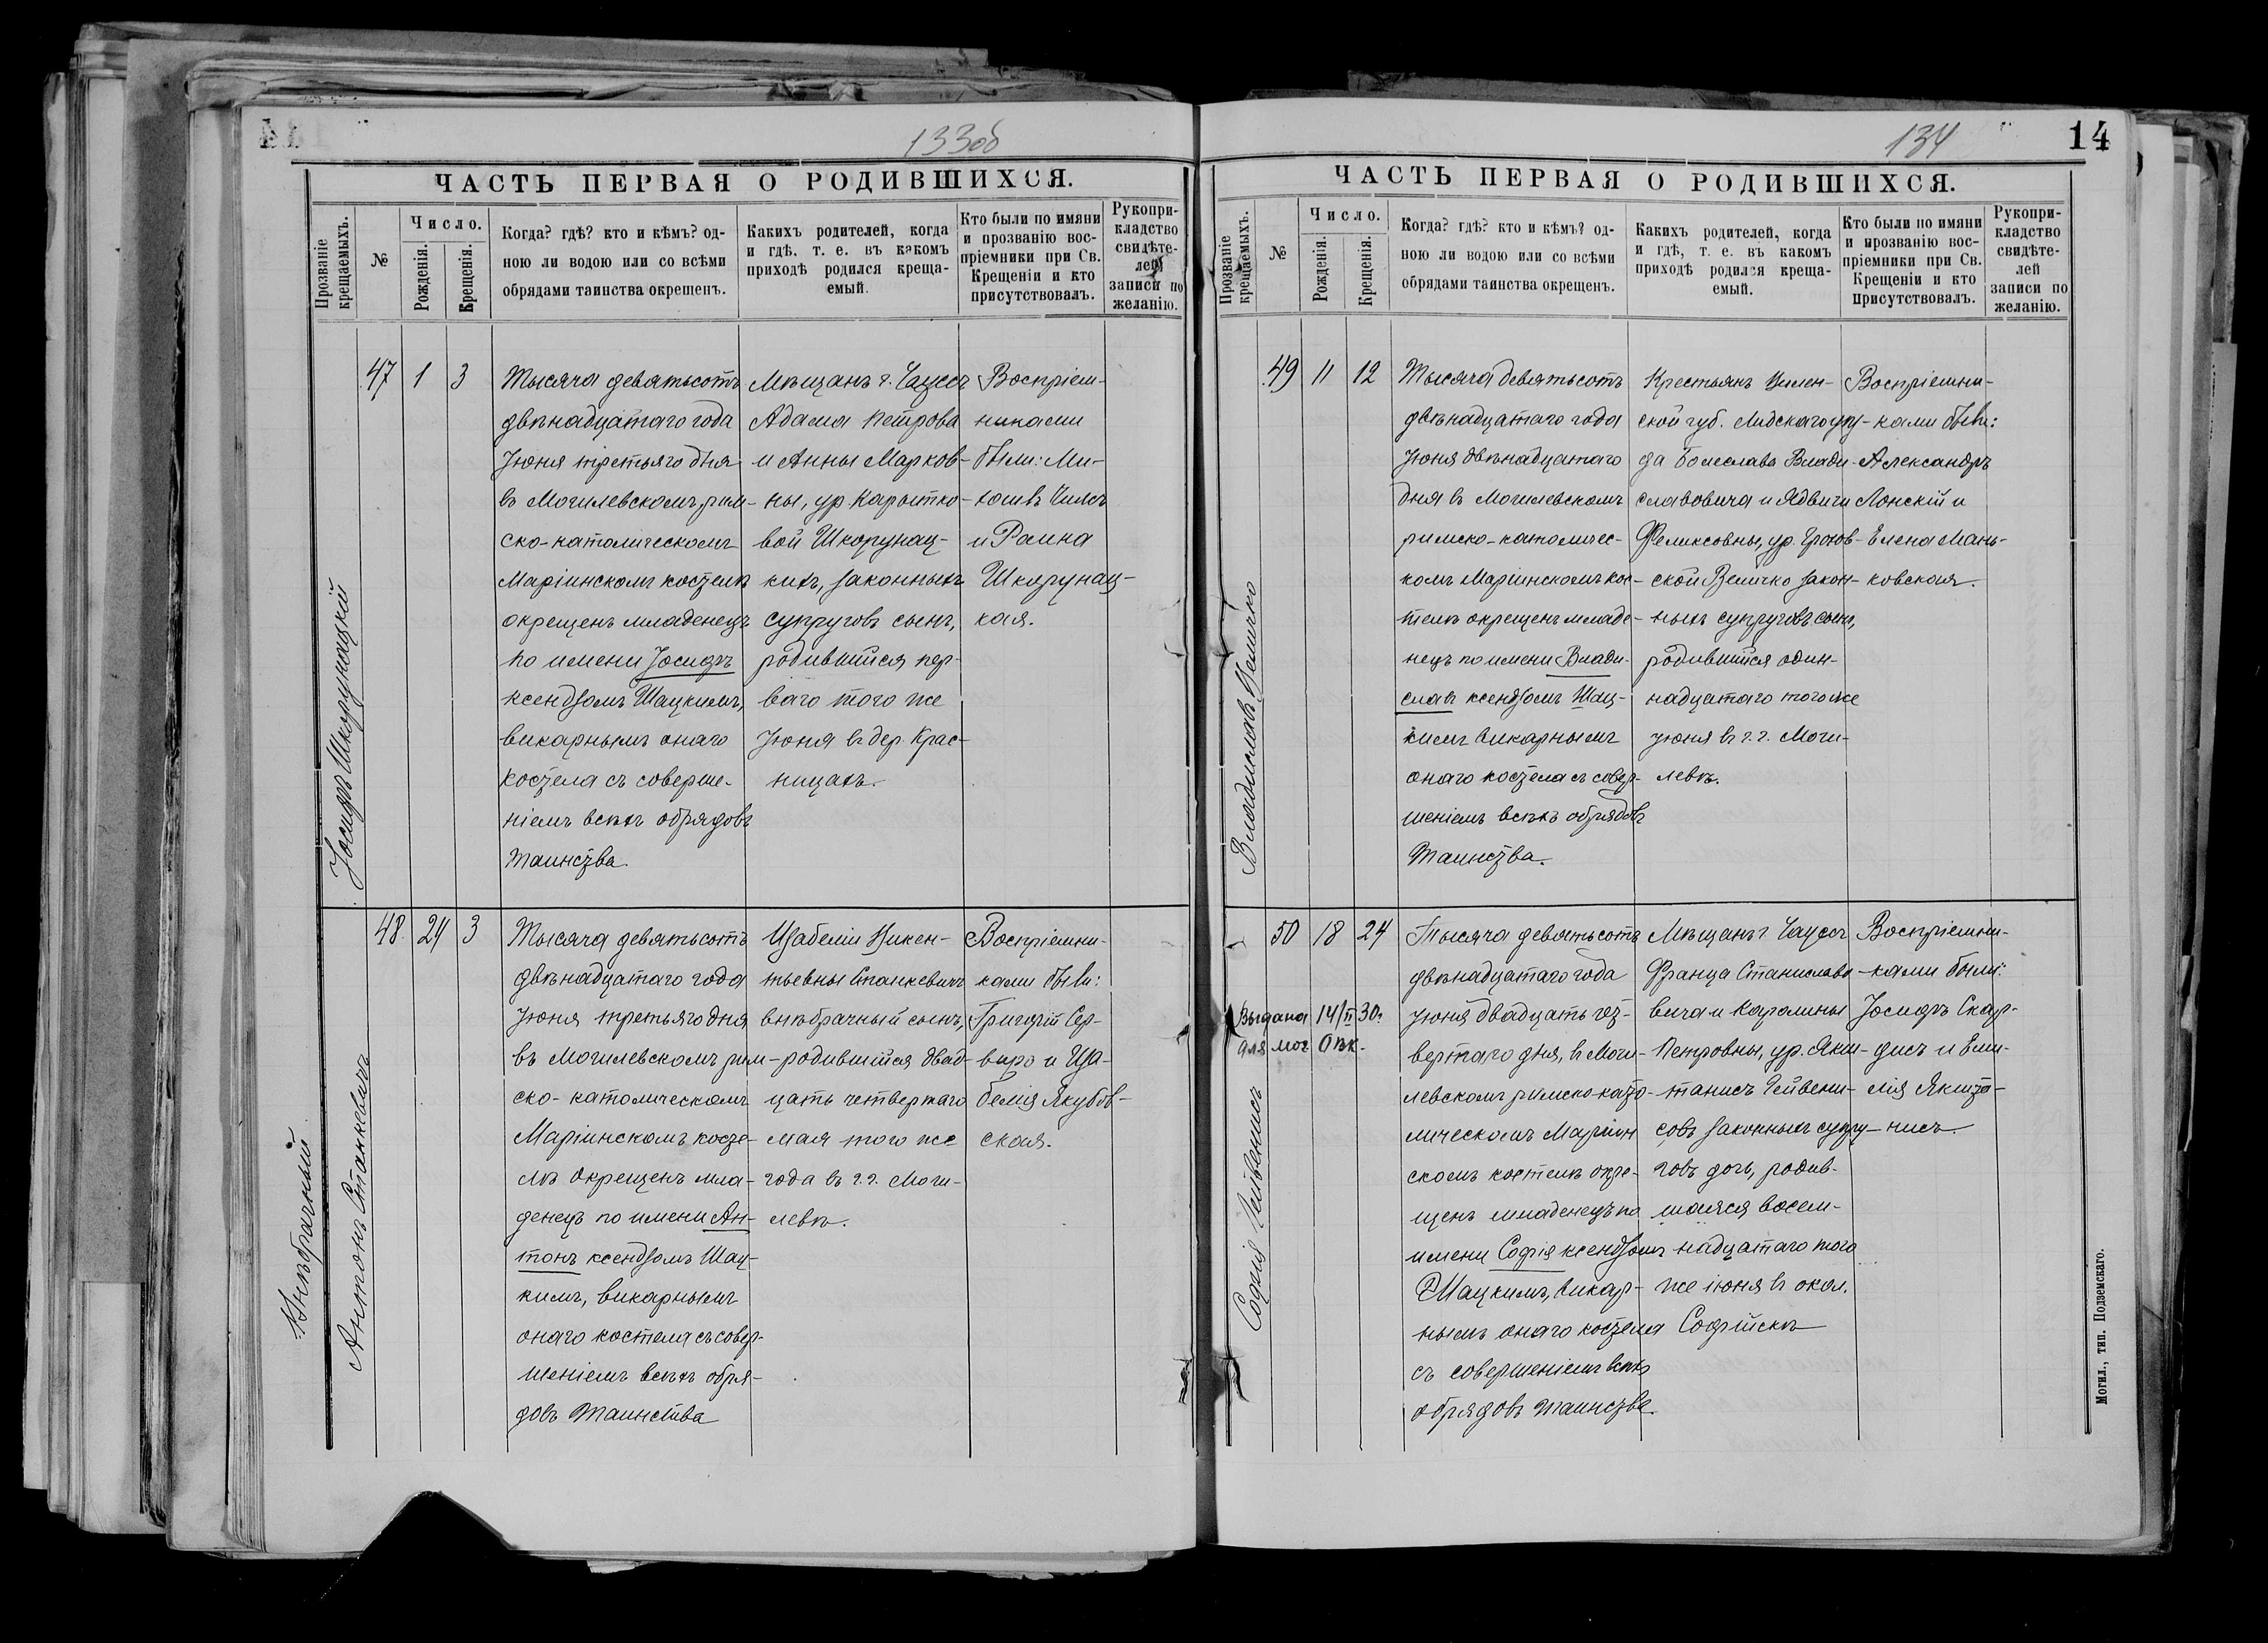 133об
ЧАСТЬ ПЕРВАЯ О РОДИВШИХСЯ.
Прозваніе крещаемыхъ.
№
Число.
Рожденія.
Крещенія.
Когда? гдѣ? кто и кѣмъ? од-
ною ли водою или со всѣми
обрядами таинства окрещенъ.
Какихъ родителей, когда
и гдѣ, т. е. въ какомъ
приходѣ родился креща-
емый.
Кто были по имяни
и прозванію вос-
пріемники при Св.
Крещеніи и кто
присутствовалъ.
Рукопри-
кладство
свидѣте-
лей
записи по
желанію.
Іосифъ Шкорунацкій
47
1
3
Тысяча девятьсотъ
двѣнадцатаго года
Іюня третьяго дня
въ Могилевскомъ рим-
ско-католическомъ
Маріинскомъ костелѣ
окрещенъ младенецъ
по имени Іосифъ
ксендзомъ Шацкимъ,
викарнымъ онаго
костела съ соверше-
ніемъ всѣхъ обрядовъ
Таинства.
Мѣщанъ г. Чаусъ
Адама Петрова
и Анны Марков-
ны, ур. Карытко-
вой Шкорунац-
кихъ, законныхъ
супруговъ сынъ,
родившійся пер-
ваго того же
Іюня въ дер. Крас-
ницахъ.
Воспріем-
никами
были: Ми-
хаилъ
и Раина
Шкорунац-
кая.
Внѣбрачный
Антонъ Станкевичъ
48
24
3
Тысяча девятьсотъ
двѣнадцатаго года
Іюня третьяго дня
въ Могилевскомъ рим-
ско-католическомъ
Маріинскомъ косте-
лѣ окрещенъ мла-
денецъ по имени Ан-
тонъ ксендзомъ Шац-
кимъ, викарнымъ
онаго костела съ совер-
шеніемъ всѣхъ обря-
довъ Таинства
Изабеліи Викен-
тьевны Станкевичъ
внѣбрачный сынъ,
родившійся двад-
цать четвертаго
мая того же
года въ г. г. Моги-
левѣ.
Воспріемни-
ками были:
Григорій Сер-
виро и Иза-
белія Якубов-
ская.
134
14
ЧАСТЬ ПЕРВАЯ О РОДИВШИХСЯ.
Прозваніе крещаемыхъ.
№
Число.
Рожденія.
Крещенія.
Когда? гдѣ? кто и кѣмъ? од-
ною ли водою или со всѣми
обрядами таинства окрещенъ.
Какихъ родителей, когда
и гдѣ, т. е. въ какомъ
приходѣ родился креща-
емый.
Кто были по имяни
и прозванію вос-
пріемники при Св.
Крещеніи и кто
присутствовалъ.
Рукопри-
кладство
свидѣте-
лей
записи по
желанію.
Владиславъ Величко
49
11
12
Тысяча девятьсотъ
двѣнадцатаго года
Іюня двѣнадцатаго
дня въ Могилевскомъ
римско-католичес-
комъ Маріинскомъ кос-
телѣ окрещенъ младе-
нецъ по имени Влади-
славъ ксендзомъ Шац-
кимъ викарнымъ
онаго костела съ совер-
шеніемъ всѣхъ обрядовъ
Таинства.
Крестьянъ Вилен-
ской губ. Лидскаго уѣз-
да Болеслава Влади-
славовича и Ядвиги
Феликсовны, ур.
Величко закон-
ныхъ супруговъ сынъ,
родившійся один-
надцатаго того же
Іюня въ г. г. Моги-
левѣ.
Воспріемни-
ками были:
Александръ
Лонскій и
Елена Мань-
ковская.
Софія
Выдана 14/II 30г.
для мог Окк.
50
18
24
Тысяча девятьсотъ
двѣнадцатаго года
Іюня двадцать чет-
вертаго дня, въ Моги-
левскомъ римско-като-
лическомъ Маріин
скомъ костелѣ окре-
щенъ младенецъ по
имени Софія ксендзомъ
Шацкимъ, викар-
нымъ онаго костела
съ совершеніемъ всѣхъ
обрядовъ таинства.
Мѣщанъ г. Чаусъ
Франца Станиславо-
вича и Каролины
Петровны, ур. Якш-
танисъ Чейвени-
совъ законныхъ супру-
говъ дочь, родив-
шаяся восем-
надцатаго того
же іюня въ окол.
Софійскѣ
Воспріемни-
ками были:
Іосифъ Скар-
дисъ и Еми-
лія Якшта-
нисъ.
Могил., тип. Подземскаго.